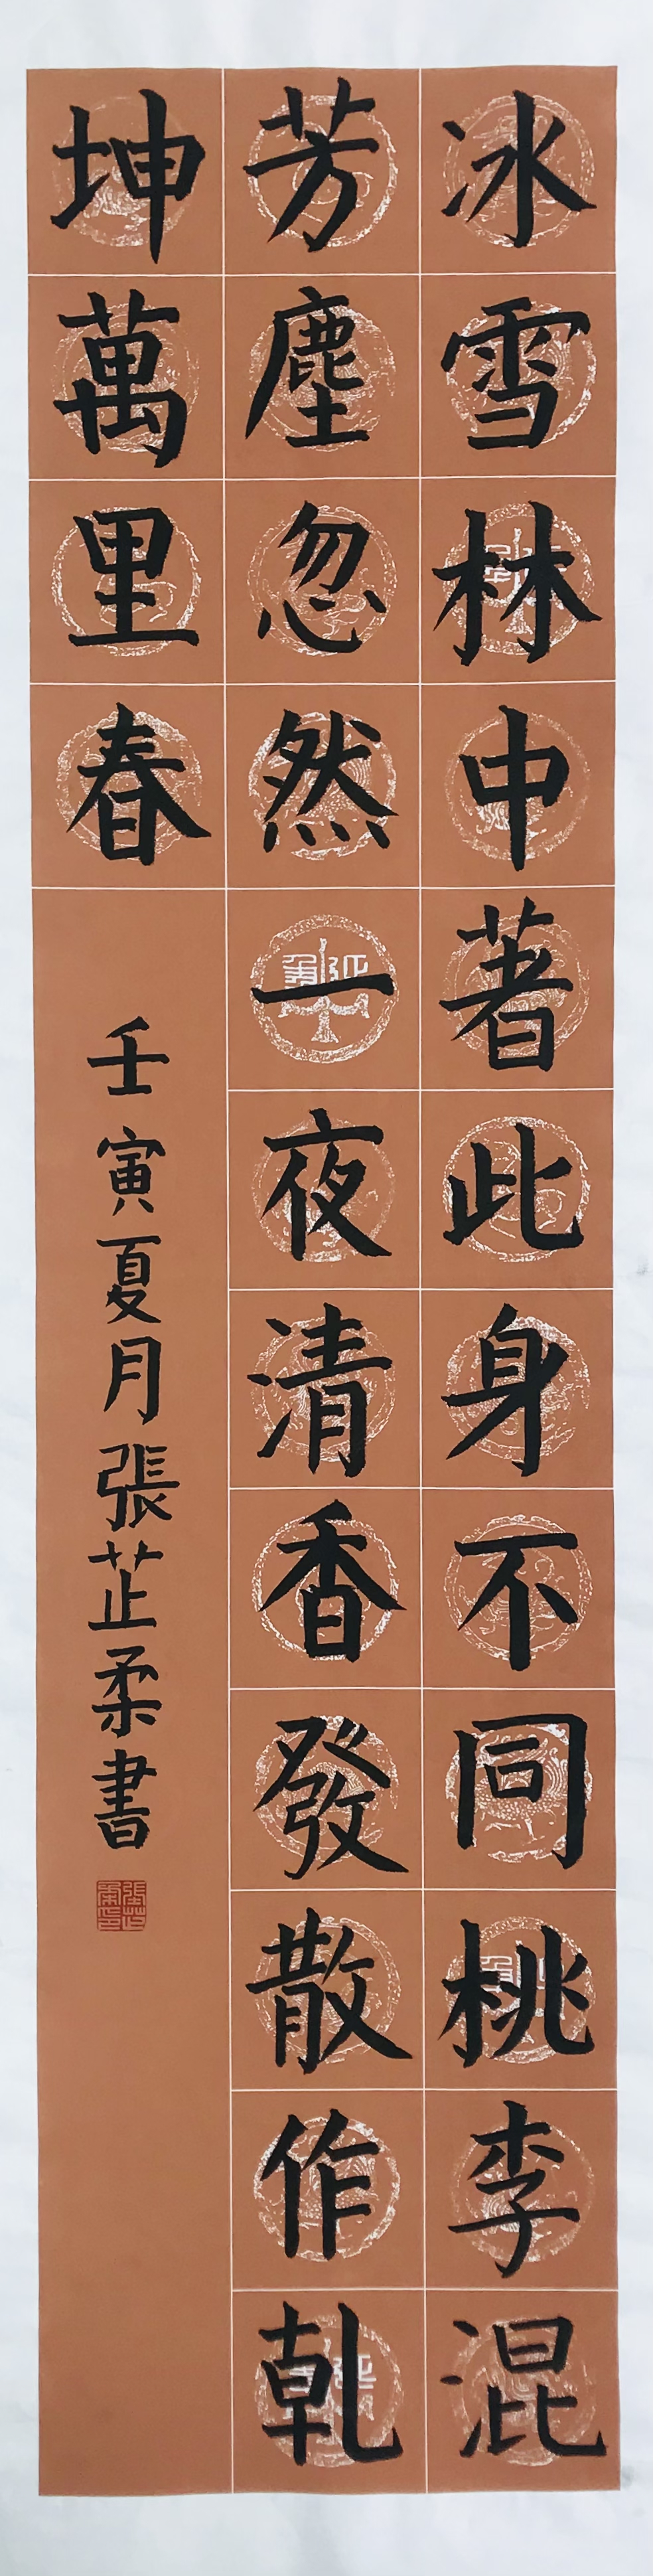 冰雪林中著此身不同桃李混
芳塵忽然一夜清香發散作乾
坤萬里春
壬寅夏月張芷柔書